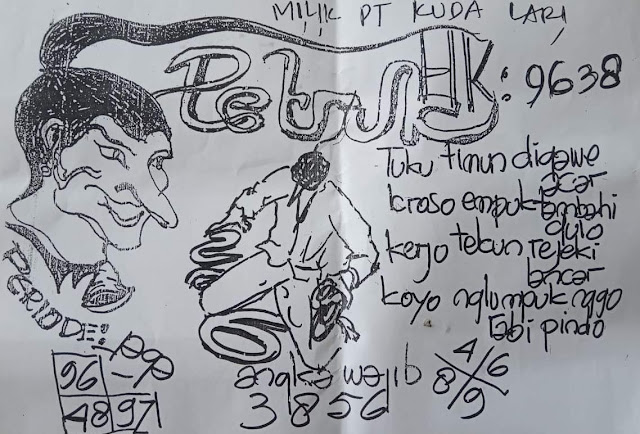 MILIK PT KUDA LARI
PetruK EK: 9638
Tuku timun digawe
acar
kroso empuk tambahi
gulo
kerjo tekun rejeki
lancar
koyo nglumpuk nggo
Rabi pindo
PERIODE:
96
48 97
angka wajib
3856
4 6
8 9